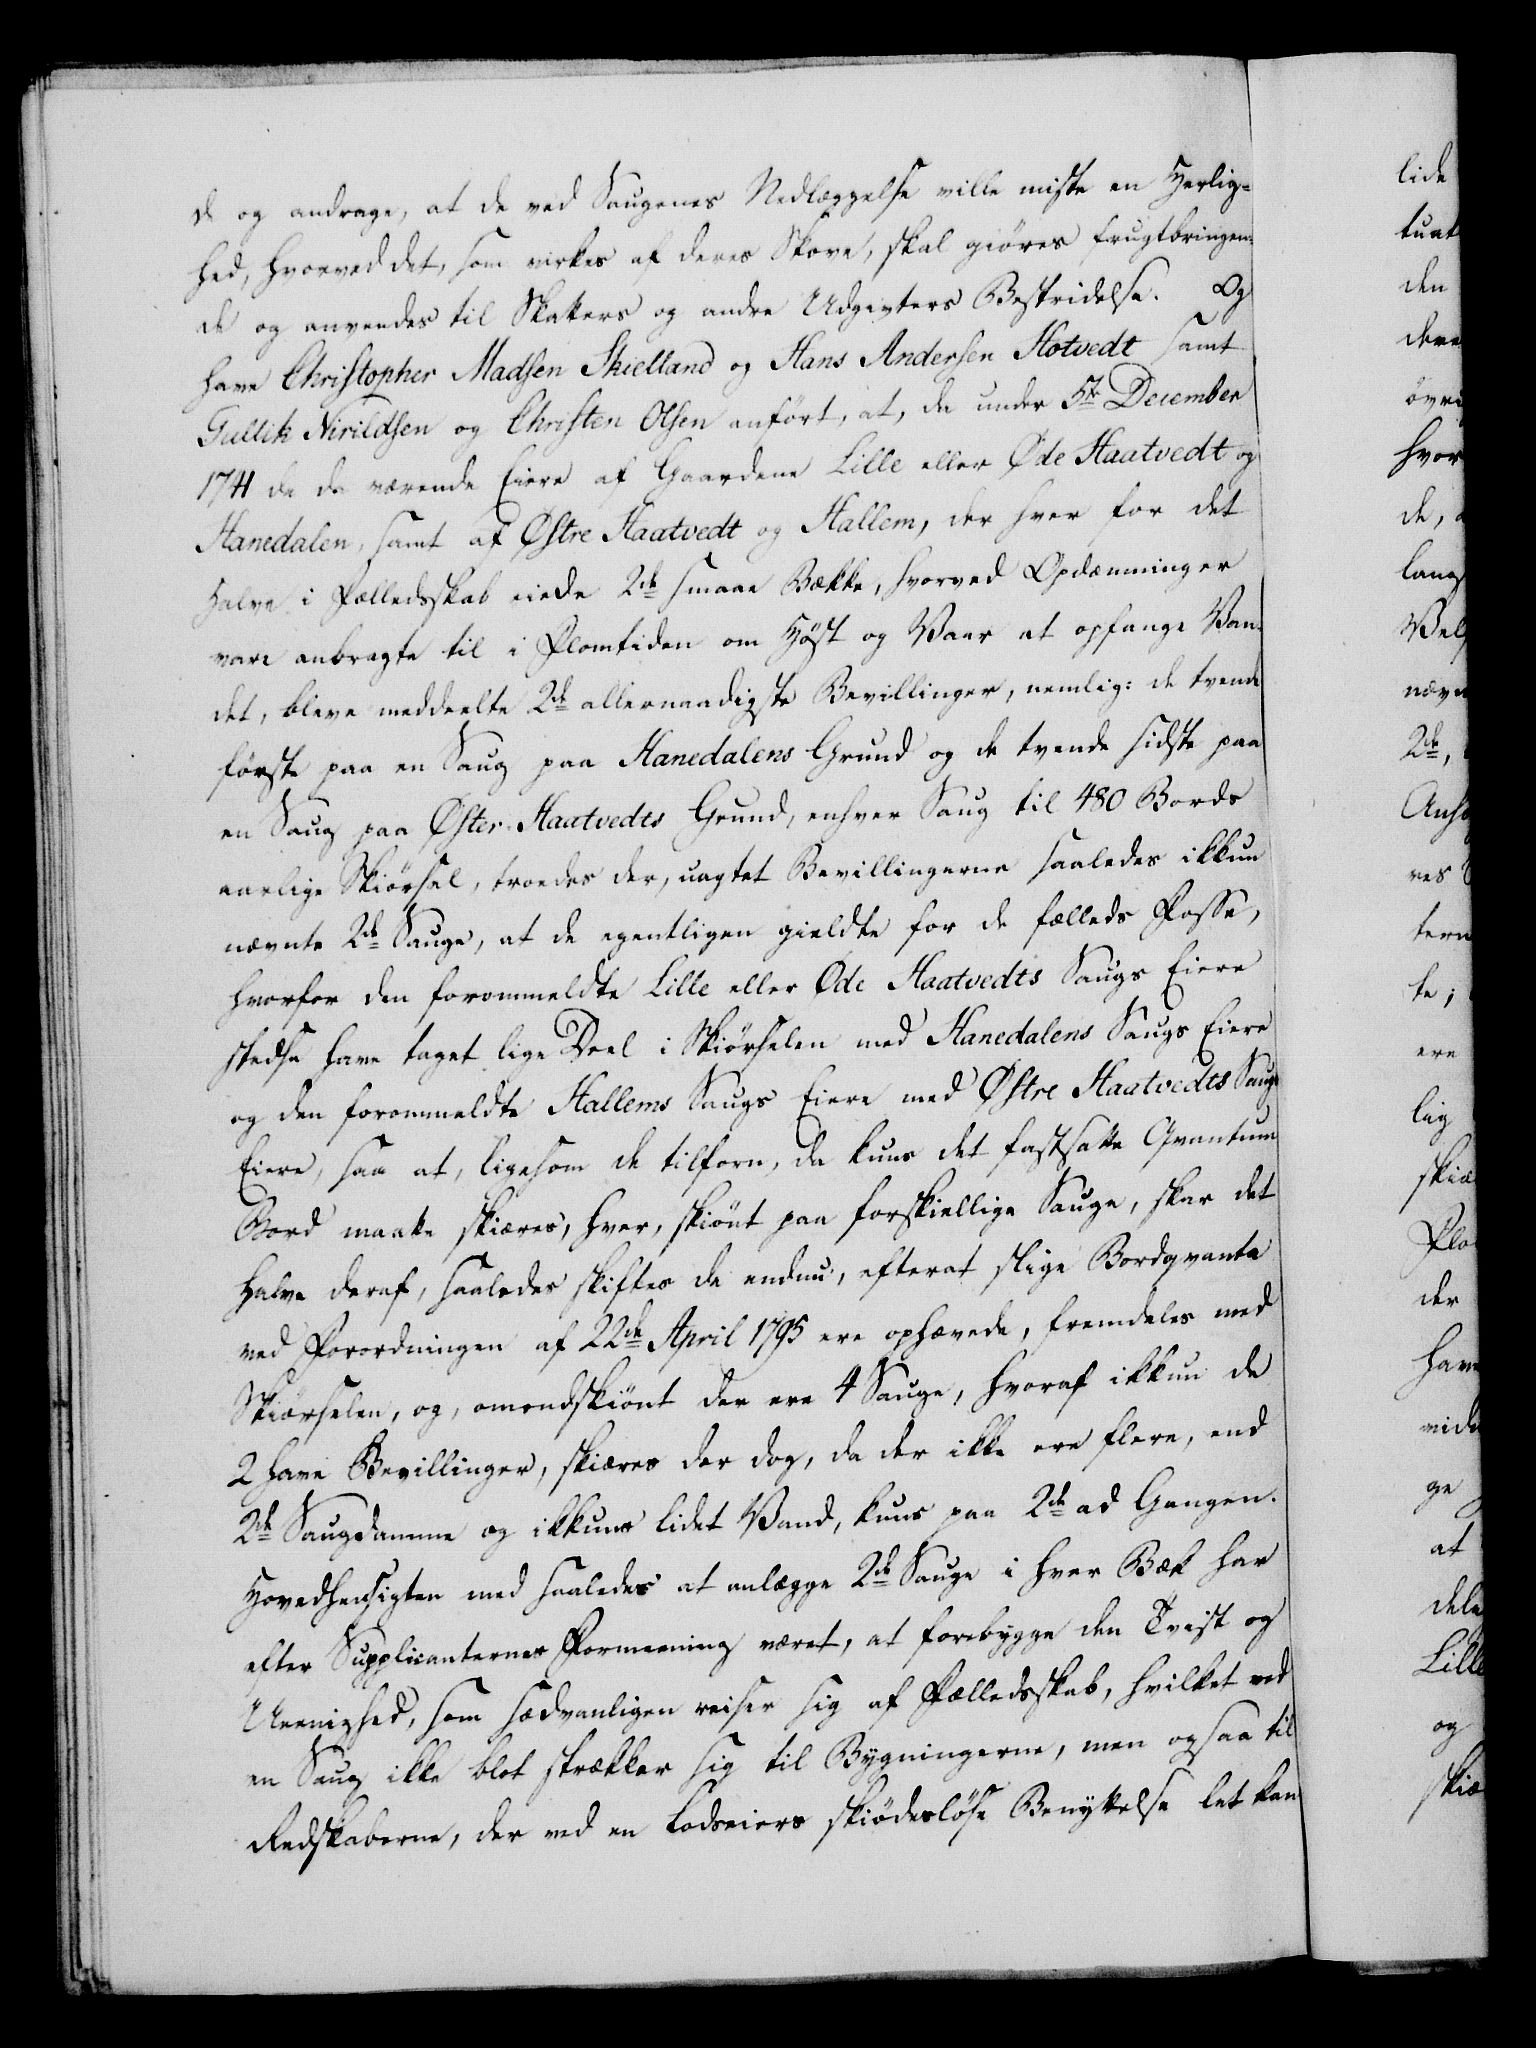 de og andrage, at de ved Saugenes Nedlæggelse ville miste en Herlig-
hed, hvorved det, som virkes af deres Skove, skal giöres frugtbringen-
de og anvendes til Skatters og andre Udgivters Bestridelse. Og
have Christopher Madsen Skielland og Hans Andersen Hotvedt samt
Gullik Nirildsen og Christen Olsen anført, at, da under 5te December
1741 de da værende Eiere af Gaardene Lille eller Øde Haatvedt og
Hanedalen, samt af Østre Haatvedt og Hallem, der hver for det
halve i Fælledsskab eiede 2de smaae Bække, hvorved Opdæmninger
vare anbragte til i Flomtiden om Høst og Vaar at opfange Van-
det, bleve meddeelte 2de allernaadigste Bevillinger, nemlig: de tvende
første paa en Saug paa Hanedalens Grund og de tvende sidste paa
en Saug paa Øster Haatvedts Grund, enhver Saug til 480 Bords
aarlige Skiørsel, troedes der, uagtet Bevillingerne saaledes ikkun
nævnte 2de Sauge, at de egentligen gieldte for de fælleds Fosse,
hvorfor den forommeldte Lille eller Øde Haatvedts Saugs Eiere
stedse have taget lige Deel i Skiørselen med Hanedalens Saugs Eiere
og den forommeldte Hallems Saugs Eiere med Østre Haatvedts Saugs
Eiere, saa at, ligesom de tilforn, da kuns det fastsatte Qvantum
Bord maatte skiæres, hver, skiönt paa forskiellige Sauge, skar det
halve deraf, saaledes skiftes de endnu, efterat slige Bordqvanta
ved Forordningen af 22de April 1795 ere ophævede, fremdeles med
Skiørselen, og, omendskiönt der ere 4 Sauge, hvoraf ikkun de
2 have Bevillinger, skiæres der dog, da der ikke ere flere, end
2de Saugdamme og ikkuns lidet Vand, kuns paa 2de ad Gangen.
Hovedhensigten med saaledes at anlægge 2de Sauge i hver Bæk har
efter Supplicanternes Formeening været, at forebygge den Tvist og
Ueenighed, som sædvanligen reiser sig af Fælledsskab, hvilket ved
en Saug ikke blot strækker sig til Bygningerne, men ogsaa til
Redskaberne, der ved en Lodseiers skiødesløse Benyttelse let kan
lide
tuat
den
dere
øvri
hvor
de,
lang
Vel
næv
2de,
Ansø
res
tern
te;
ere
lig
skiæ
Flo
der
have
vide
ge
at
dele
Lille
og
skiæ